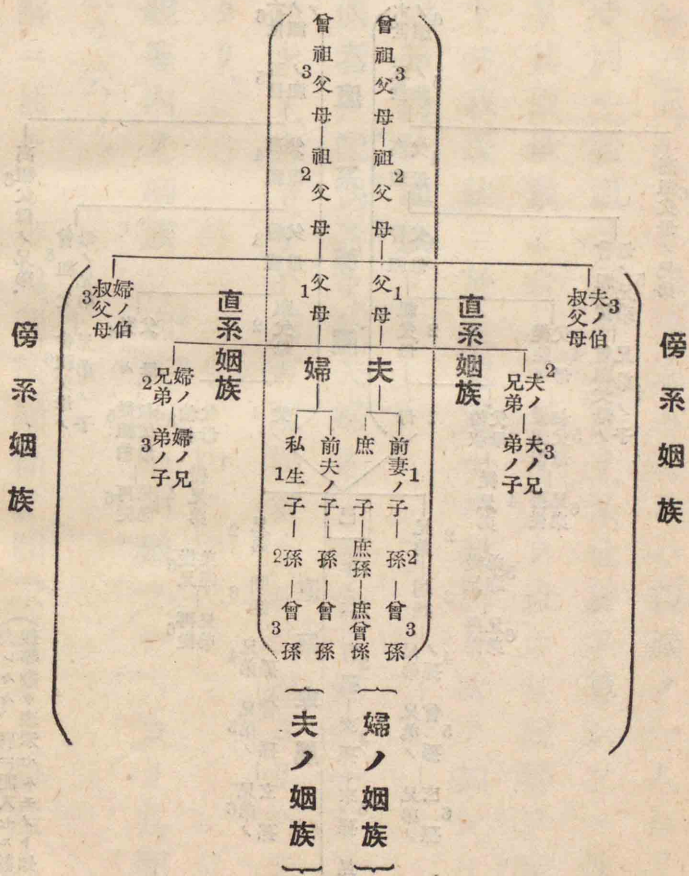 傍系姻族
夫ノ伯叔父母 3
夫ノ兄弟 2
夫ノ兄弟ノ子 3
直系姻族
曾祖父母 3
祖父母 2
父母 1
夫
前妻ノ子 1
孫 2
曾孫 3
庶子
庶孫
庶曾孫
婦ノ姻族
曾祖父母 3
祖父母 2
父母 1
婦
前夫ノ子
孫
曾孫
私生子 1
孫 2
曾孫 3
夫ノ姻族
直系姻族
婦ノ兄弟 2
婦ノ兄弟ノ子 3
婦ノ伯叔父母 3
傍系姻族